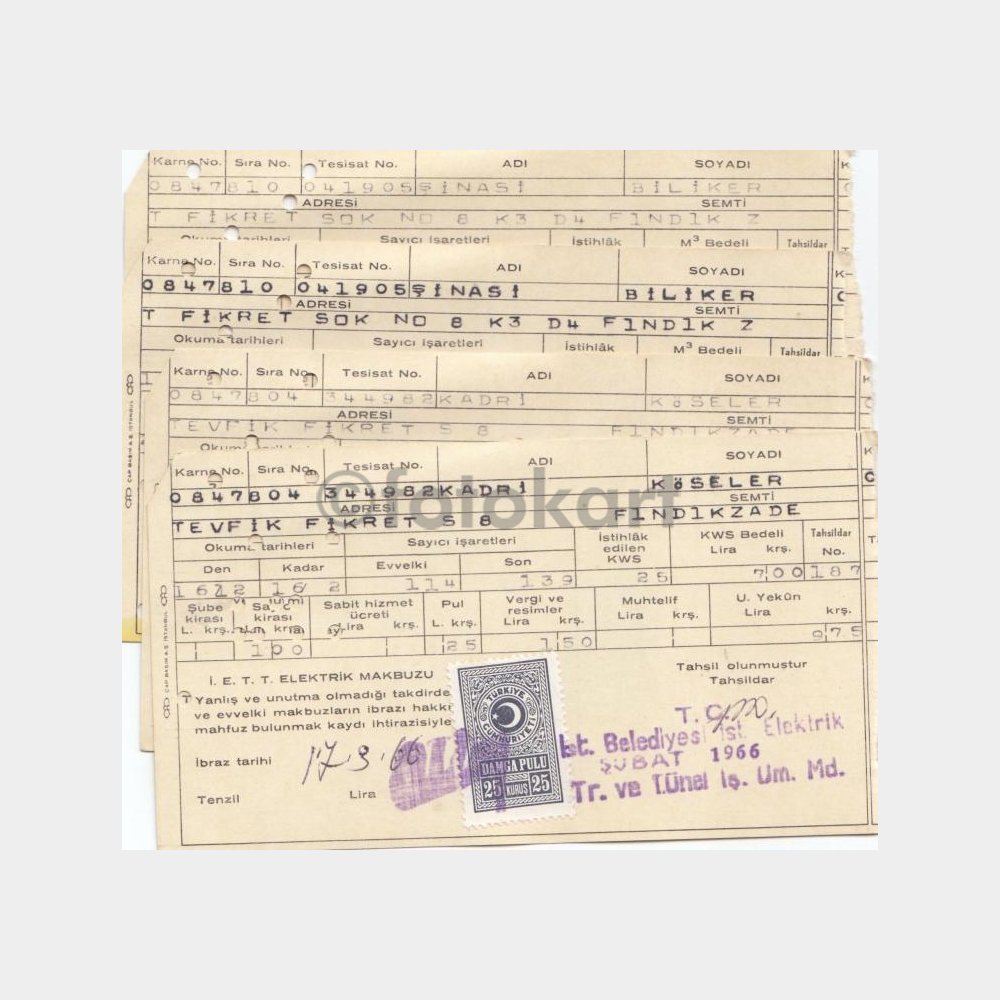 Karne No. Sıra No. Tesisat No. ADI SOYADI
0847810 041905ŞİNASİ BİLİKER
ADRESİ SEMTİ
T FİKRET SOK NO 8 K3 D4 FINDIK Z
Okuma tarihleri Sayıcı işaretleri İstihlâk M³ Bedeli Tahsildar
Karne No. Sıra No. Tesisat No. ADI SOYADI
0847810 041905ŞİNASİ BİLİKER
ADRESİ SEMTİ
T FİKRET SOK NO 8 K3 D4 FINDIK Z
Okuma tarihleri Sayıcı işaretleri İstihlâk M³ Bedeli Tahsildar
Karne No. Sıra No. Tesisat No. ADI SOYADI
0847804 344982KADRİ KÖSELER
ADRESİ SEMTİ
TEVFİK FİKRET S 8 FINDIKZADE
Karne No. Sıra No. Tesisat No. ADI SOYADI
0847804 344982KADRİ KÖSELER
ADRESİ SEMTİ
TEVFİK FİKRET S 8 FINDIKZADE
©fotokart
Okuma tarihleri Sayıcı işaretleri İstihlâk edilen KWS KWS Bedeli Tahsildar
Den Kadar Evvelki Son Lira krş. No.
1612 16 2 114 139 25 7 00 187
Şube kirası Sabit hizmet ücreti Pul Vergi ve resimler Muhtelif U. Yekûn
L. krş. Lira krş. L. krş. Lira krş. Lira krş. Lira krş.
1 00 25 1 50 9 75
İ. E. T. T. ELEKTRİK MAKBUZU
Tahsil olunmuştur
Tahsildar
Yanlış ve unutma olmadığı takdirde
ve evvelki makbuzların ibrazı hakkı
mahfuz bulunmak kaydı ihtirazisiyle
İbraz tarihi 17.3.66
Tenzil Lira
TÜRKİYE
CUMHURİYETİ
DAMGA PULU
25 KURUŞ 25
T. C.
İst. Belediyesi İst. Elektrik
ŞUBAT 1966
Tr. ve Tünel İş. Um. Md.
CAP BASIN A.S. İSTANBUL
CAP BASIN A.S. İSTANBUL